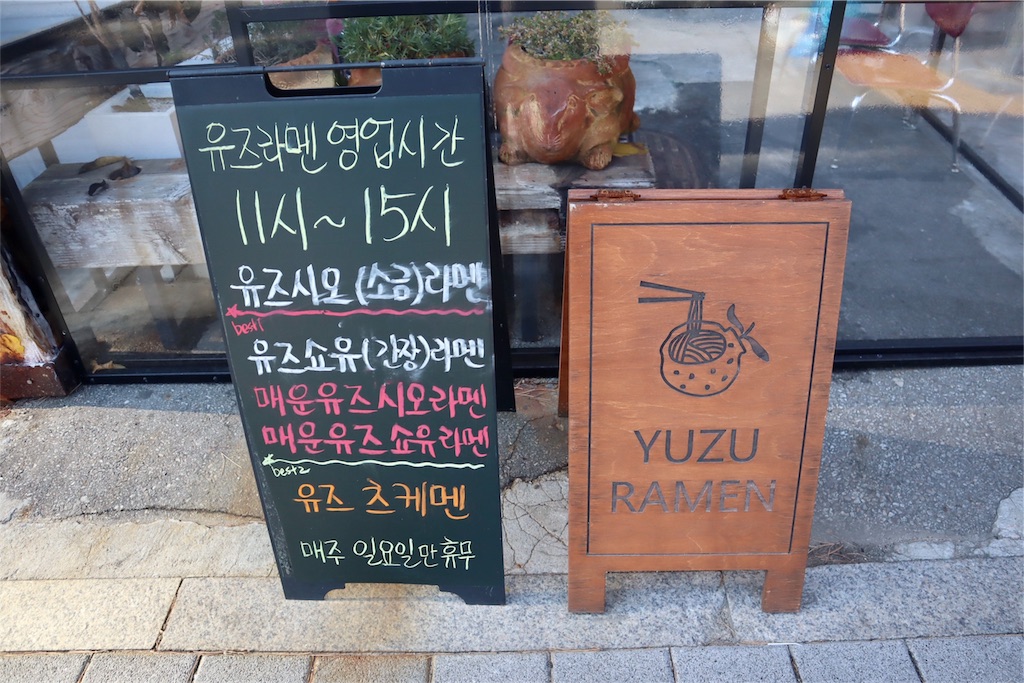 유즈라멘 영업시간
11시~15시
유즈시오(소금)라멘
best1
유즈쇼유(간장)라멘
매운유즈시오라멘
매운유즈쇼유라멘
best2
유즈 츠케멘
매주 일요일만 휴무
YUZU
RAMEN